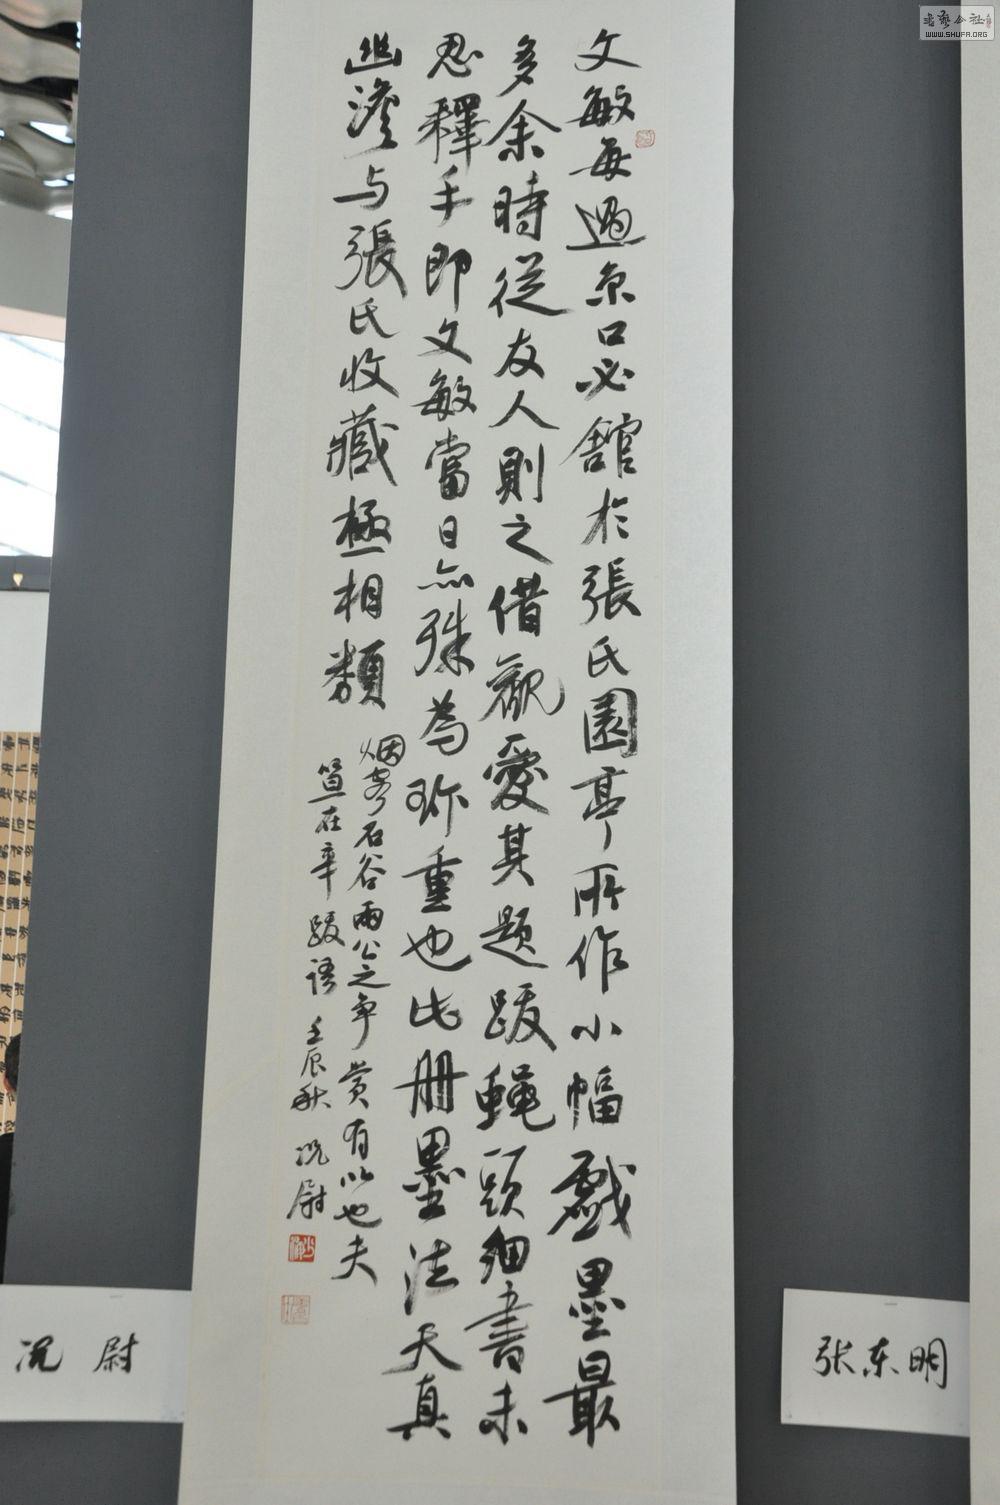 文敏每過京口必舘於張氏園亭所作小幅戲墨最
多余時從友人則之借觀愛其題跋蝇頭細書未
忍釋手即文敏當日亦殊為珎重也此册墨法天真
幽澹与張氏收藏極相類
烟客石谷兩公之争黄有以也夫
笪在辛跋语 壬辰秋 况尉
况尉
张东明
书艺公社
WWW.SHUFA.ORG